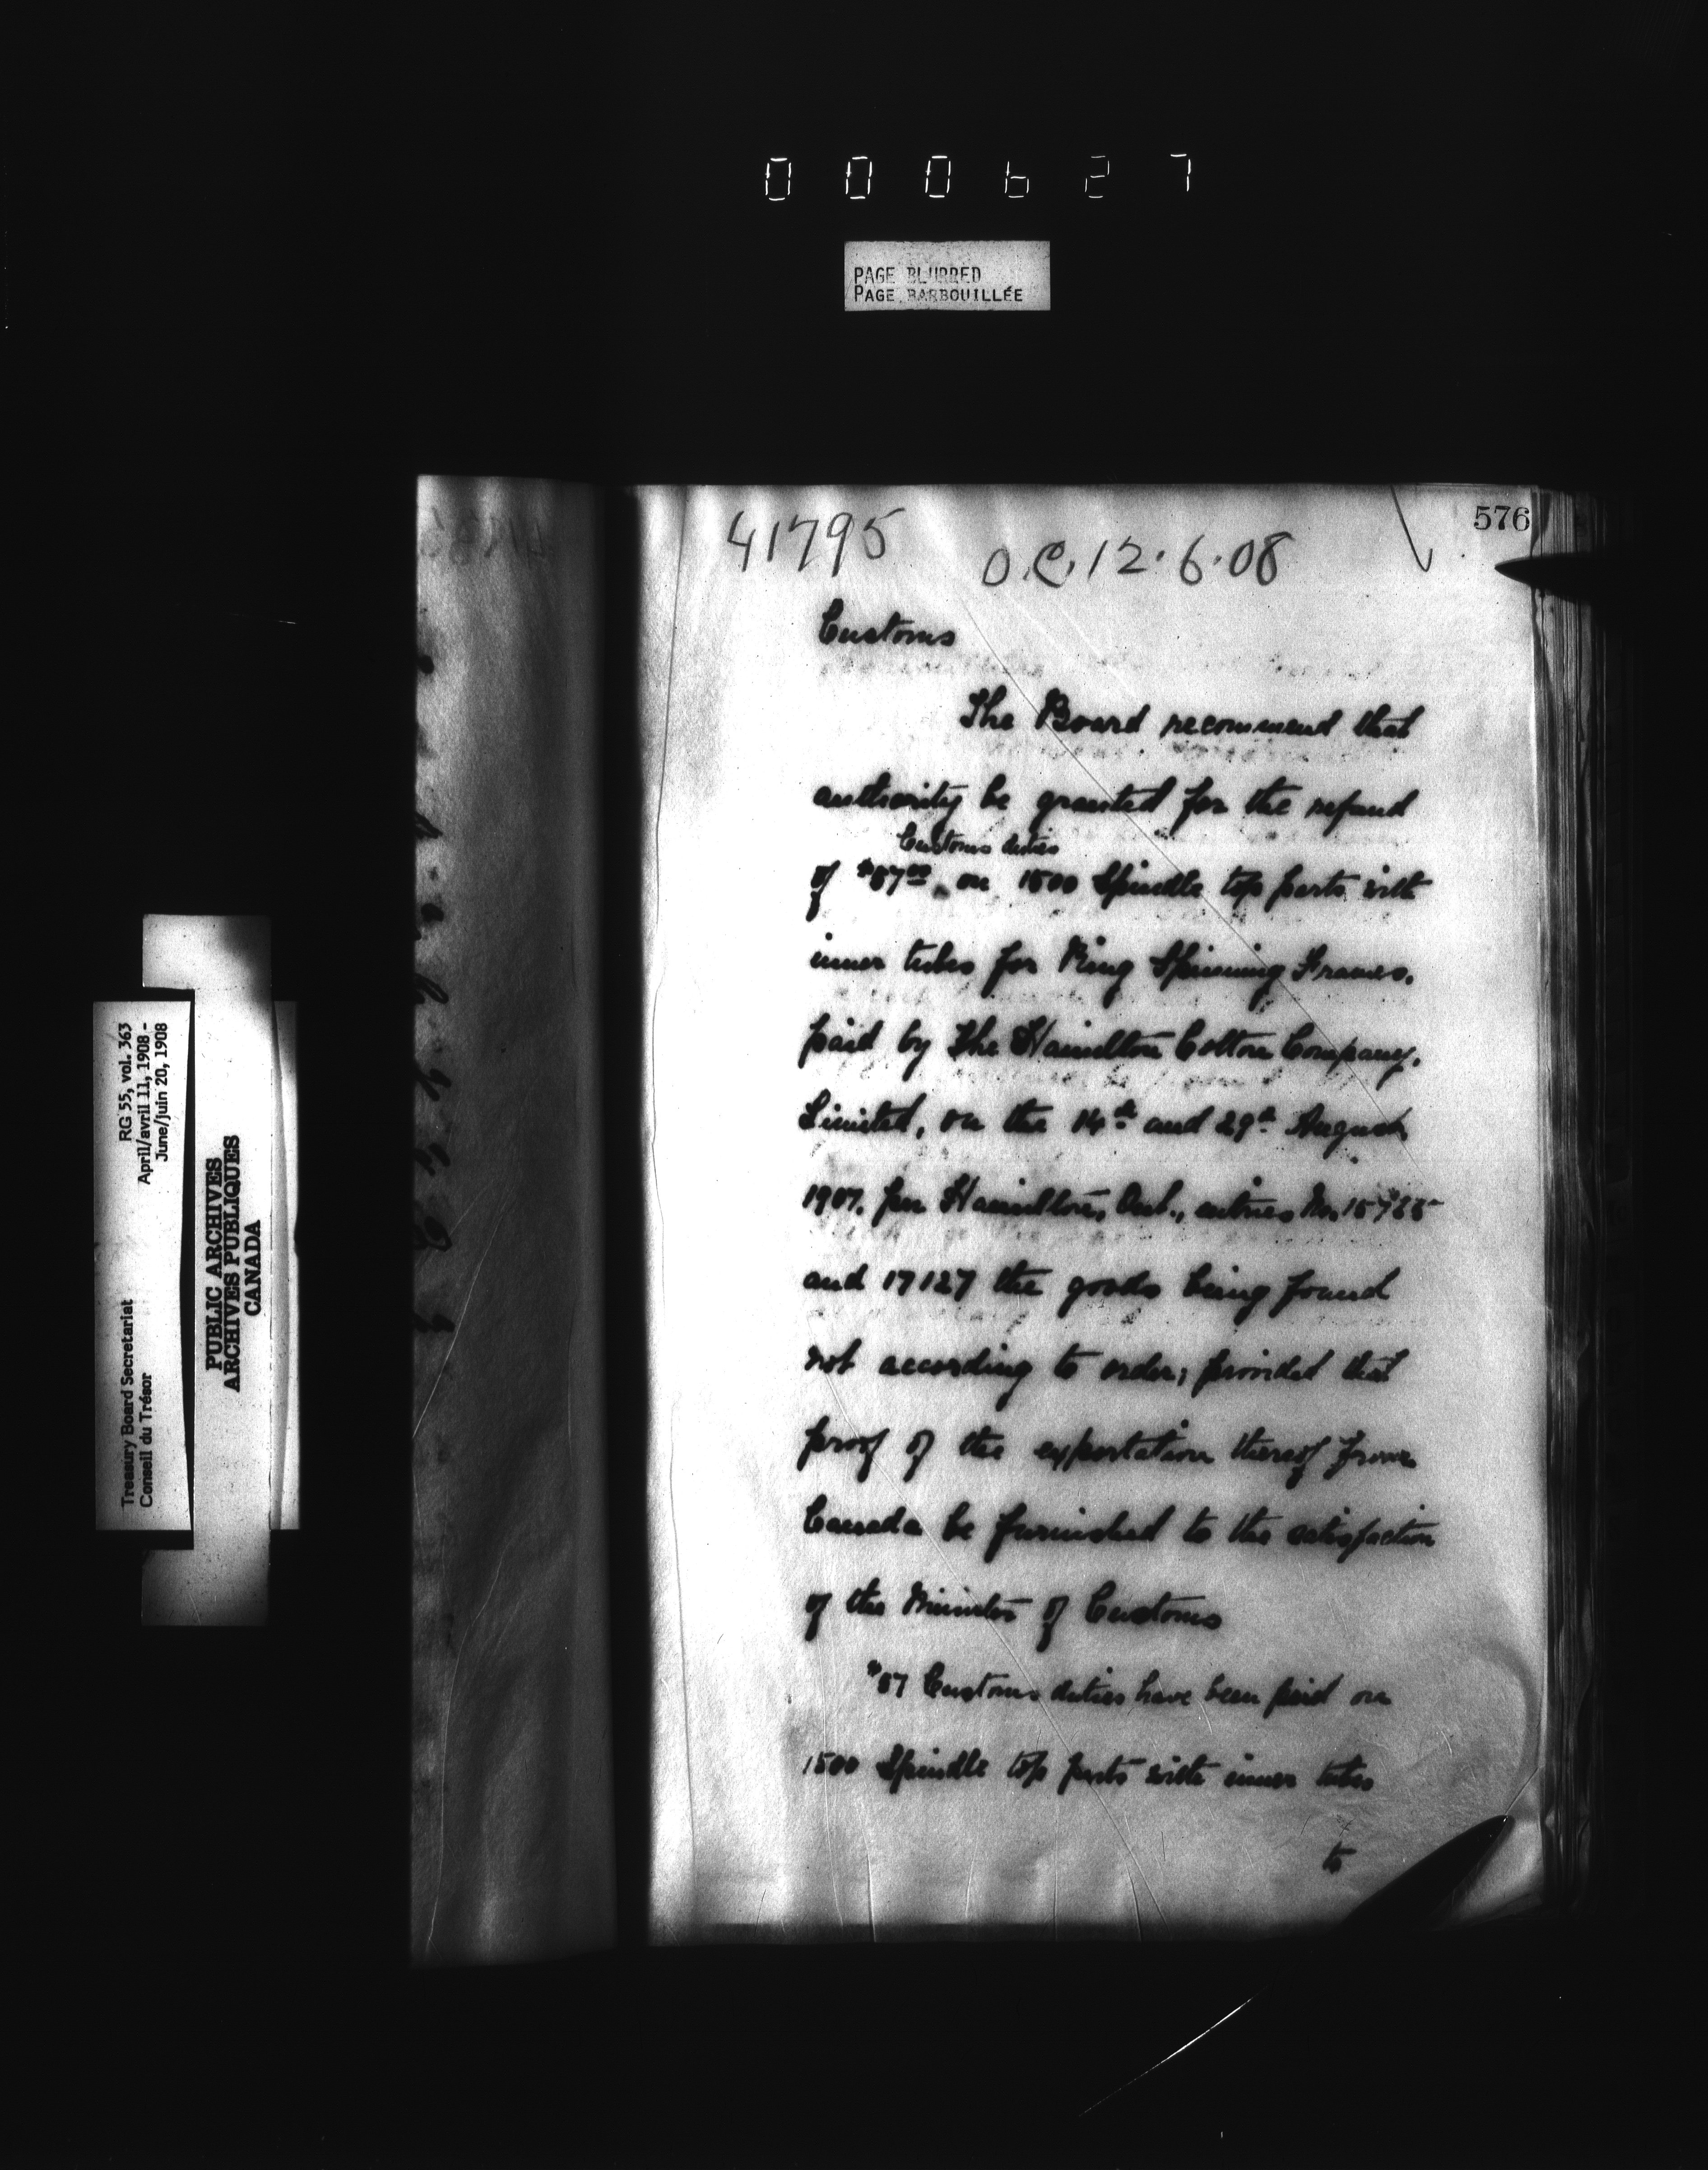 000627
PAGE BLURRED
PAGE BARBOUILLÉE
576
41795
O.C. 12.6.08
Customs
The Board recommend that
authority be granted for the refund
Customs duties
of $87.00 on 1500 Spindle top parts with
inner tubes for Ring Spinning Frames.
paid by The Hamilton Cotton Company,
Limited, on the 14th and 29th August
1907, per Hamilton, Ont., entries No.
and 17127 the goods being found
not according to order; provided that
proof of the exportation thereof from
Canada be furnished to the satisfaction
of the Minister of Customs
$87 Customs duties have been paid on
1500 Spindle top parts with inner tubes
to
Treasury Board Secretariat
Conseil du Trésor
RG 55, vol. 363
April/avril 11, 1908 -
June/juin 20, 1908
PUBLIC ARCHIVES
ARCHIVES PUBLIQUES
CANADA